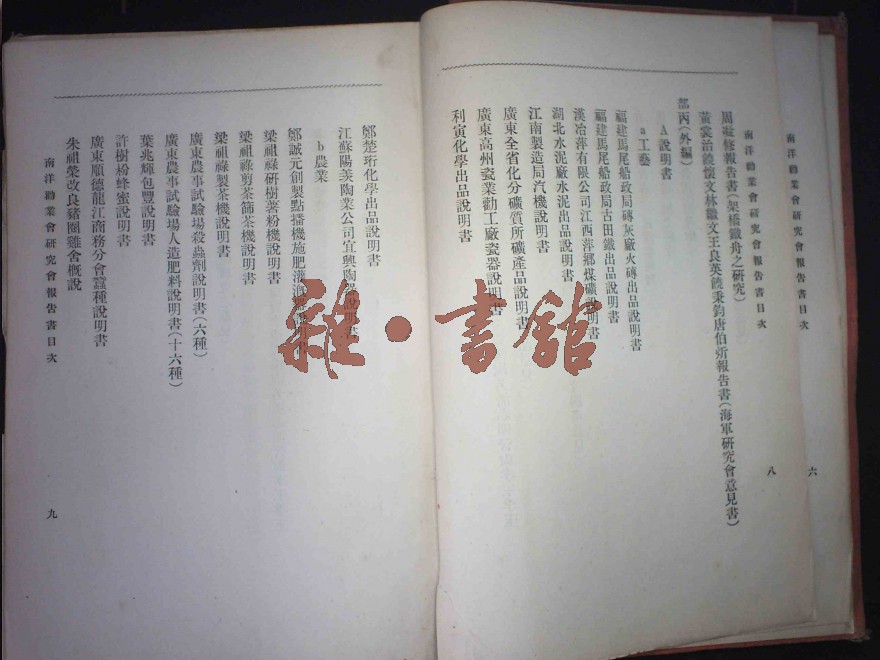 南洋勸業會研究會報告書目次
六
南洋勸業會研究會報告書目次
八
周凝修報告書(架橋鐵舟之研究)
黃裳治饒懷文林繼文王良英饒秉鈞唐伯斻報告書(海軍研究會意見書)
部丙(外編)
A 說明書
a 工藝
福建馬尾船政局磚灰廠火磚出品說明書
福建馬尾船政局古田鐵出品說明書
漢冶萍有限公司江西萍鄉煤礦說明書
湖北水泥廠水泥出品說明書
江南製造局汽機說明書
廣東全省化分礦質所礦產品說明書
廣東高州瓷業勸工廠瓷器說明書
利寅化學出品說明書
鄭楚珩化學出品說明書
江蘇陽羨陶業公司宜興陶器說明書
b 農業
鄭誠元創製點播機施肥灌溉器說明書
梁祖祿研樹薯粉機說明書
梁祖祿剪茶篩茶機說明書
梁祖祿製茶機說明書
廣東農事試驗場殺蟲劑說明書(六種)
廣東農事試驗場人造肥料說明書(十六種)
葉兆輝包豐說明書
許樹枌蜂蜜說明書
廣東順德龍江商務分會蠶種說明書
朱祖榮改良豬圈雞舍概說
南洋勸業會研究會報告書目次
九
雜·書館